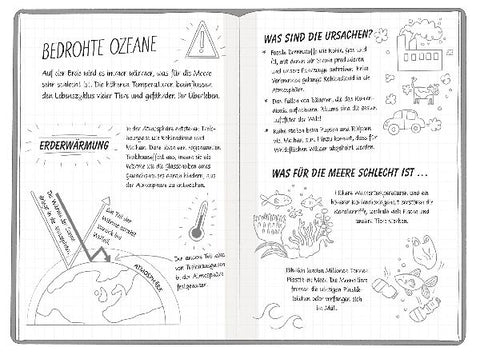 BEDROHTE OZEANE
Auf der Erde wird es immer wärmer, was für die Meere
sehr schlecht ist. Die höheren Temperaturen beeinflussen
den Lebenszyklus vieler Tiere und gefährden ihr Überleben.
ERDERWÄRMUNG
In der Atmosphäre entstehen Treib-
hausgase wie Kohlendioxid und
Methan. Dann kann ein sogenannter
Treibhauseffekt
wie die Glasscheiben eines
Gewächshauses
der Atmosphäre zu entweichen.
Die Wärme der Sonne
dringt in die Atmosphäre.
Ein Teil der
Wärme strahlt
zurück ins
Weltall.
ATMOSPHÄRE
Der andere Teil wird
von Treibhausgasen
in der Atmosphäre
festgehalten.
WAS SIND DIE URSACHEN?
Fossile Brennstoffe wie Kohle, Gas und
Öl, mit denen wir Strom produzieren
und unsere Fahrzeuge antreiben. Beim
Verbrennen gelangt Kohlendioxid in die
Atmosphäre.
Das Fällen von Bäumen, die das Kohlen-
dioxid aufnehmen. Bäume sind die grünen
Luftfilter der Welt!
Kühe stoßen beim Pupsen und Rülpsen
viel Methan aus. Hinzu kommt, dass für
Weideflächen Wälder abgeholzt werden.
WAS FÜR DIE MEERE SCHLECHT IST ...
Höhere Wassertemperaturen, und ein
höherer Kohlendioxidgehalt zerstören die
Korallenriffe, weshalb viele Fische und
andere Tiere sterben.
Jährlich landen Millionen Tonnen
Plastik im Meer. Die Meerestiere
fressen die winzigen Plastik-
teilchen oder verfangen sich
im Müll.